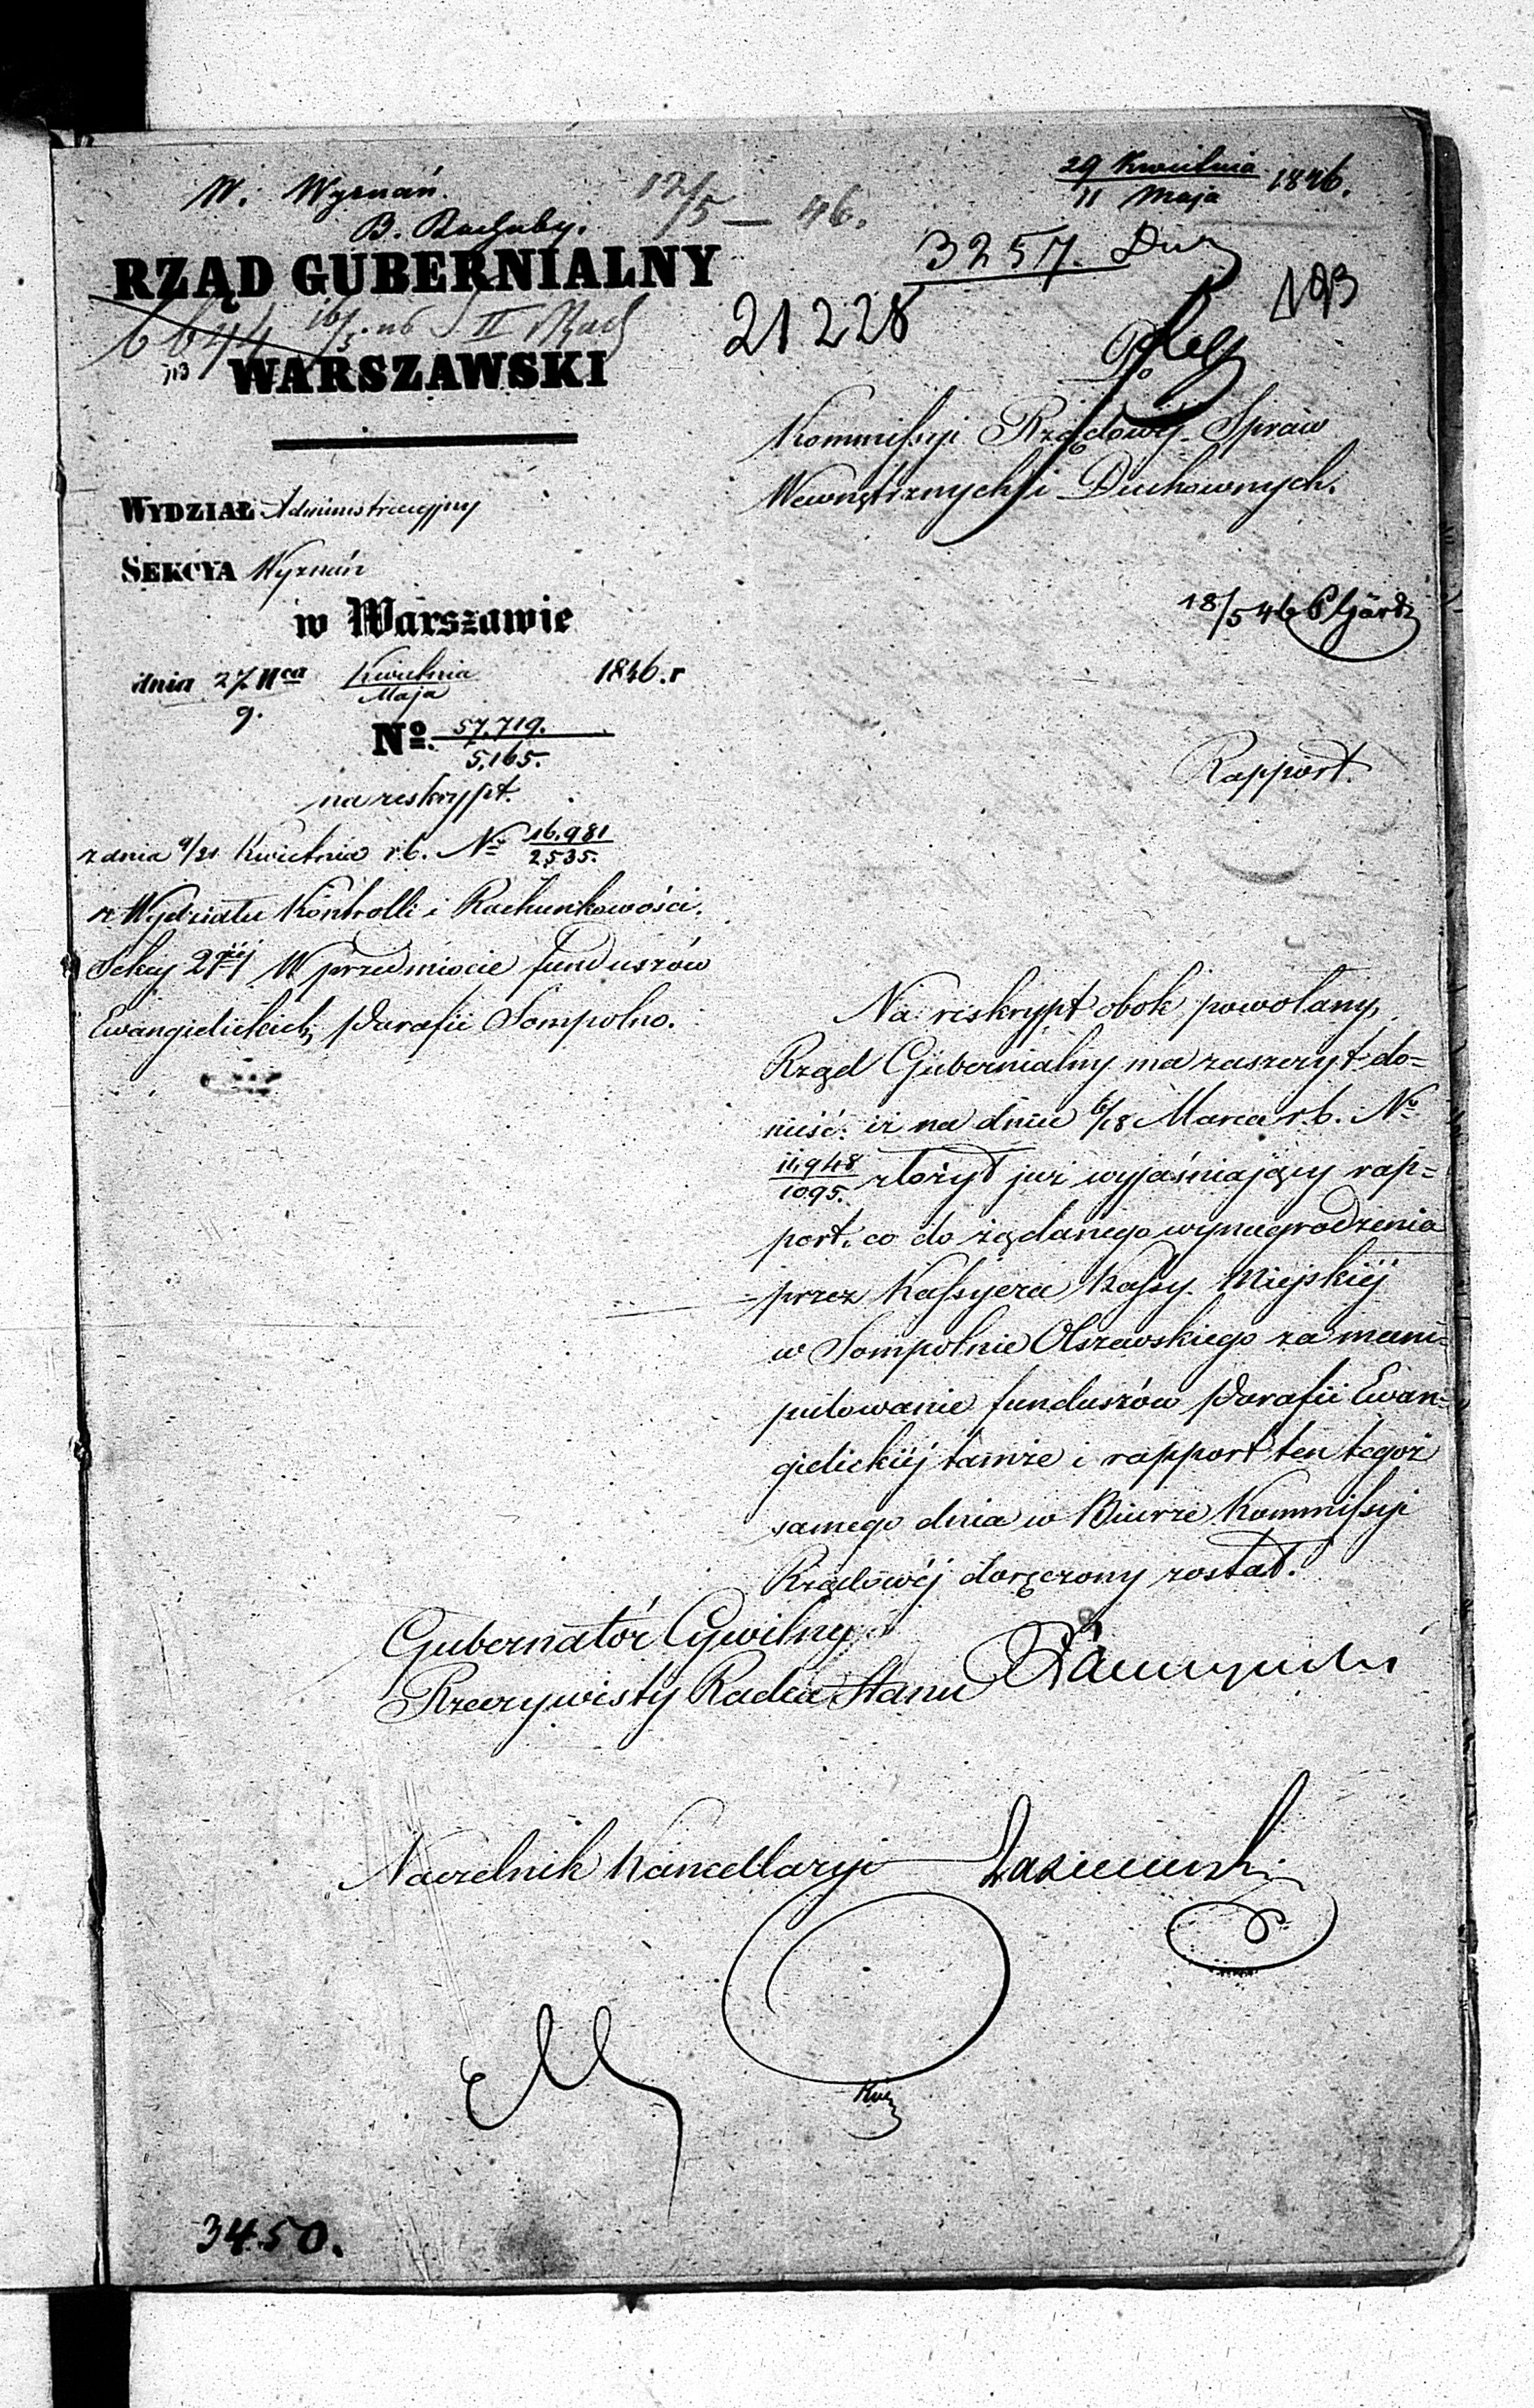 W. Wyznań.
B. Rachuby.
12/5 — 46.
29 Kwietnia
11 Maja 1846.
3257.
193
21228
RZĄD GUBERNIALNY
6644 16/5 46 S II Rach
713
WARSZAWSKI
Do
Kommissyi Rządowéj Spraw
Wewnętrznych i Duchownych.
WYDZIAŁ Administracyjny
SEKCYA Wyznań
w Warszawie
dnia 27 Kwietnia 1846.r
9. Maja
No. 57,719.
5,165.
18/5 46
na reskrypt.
z dnia 9/21 Kwietnia r.b. No 16,981
2,535.
z Wydziału Kontrolli i Rachunkowości.
Sekcyi 2giéj W przedmiocie funduszów
Ewangielickich Parafii Sompolno.
Rapport.
Na reskrypt obok powołany,
Rząd Gubernialny ma zaszczyt do-
nieść: iż na dniu 6/18 Marca r.b. No
11,948
1095. złożył już wyjaśniający rap-
port. co do żądanego wynagrodzenia
przez Kassyera Kassy Miejskiéj
w Sompolnie Olszewskiego za mani-
pulowanie funduszów Parafii Ewan-
gielickiéj tamże i rapport ten tegoż
samego dnia w Biurze Kommissyi
Rządowéj doręczony został.
Gubernator Cywilny
Rzeczywisty Radca Stanu
Naczelnik Kancellaryi
3450.